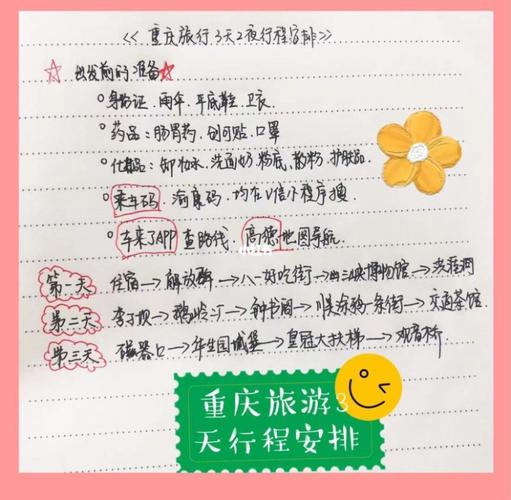 <<重庆旅行3天2夜行程安排>>
出发前的准备
身份证、雨伞、平底鞋、卫衣
药品：肠胃药、创可贴、口罩
化妆品：卸妆水、洗面奶、粉底、散粉、护肤品
乘车码、健康码、均在V信小程序搜
车来了APP查路线、高德地图导航
第一天 住宿→解放碑→八一好吃街→三峡博物馆→洪崖洞
第二天 李子坝→鹅岭二厂→钟书阁→涂鸦一条街→交通茶馆
第三天 磁器口→年生园城堡→皇冠大扶梯→观音桥
重庆旅游3
天行程安排